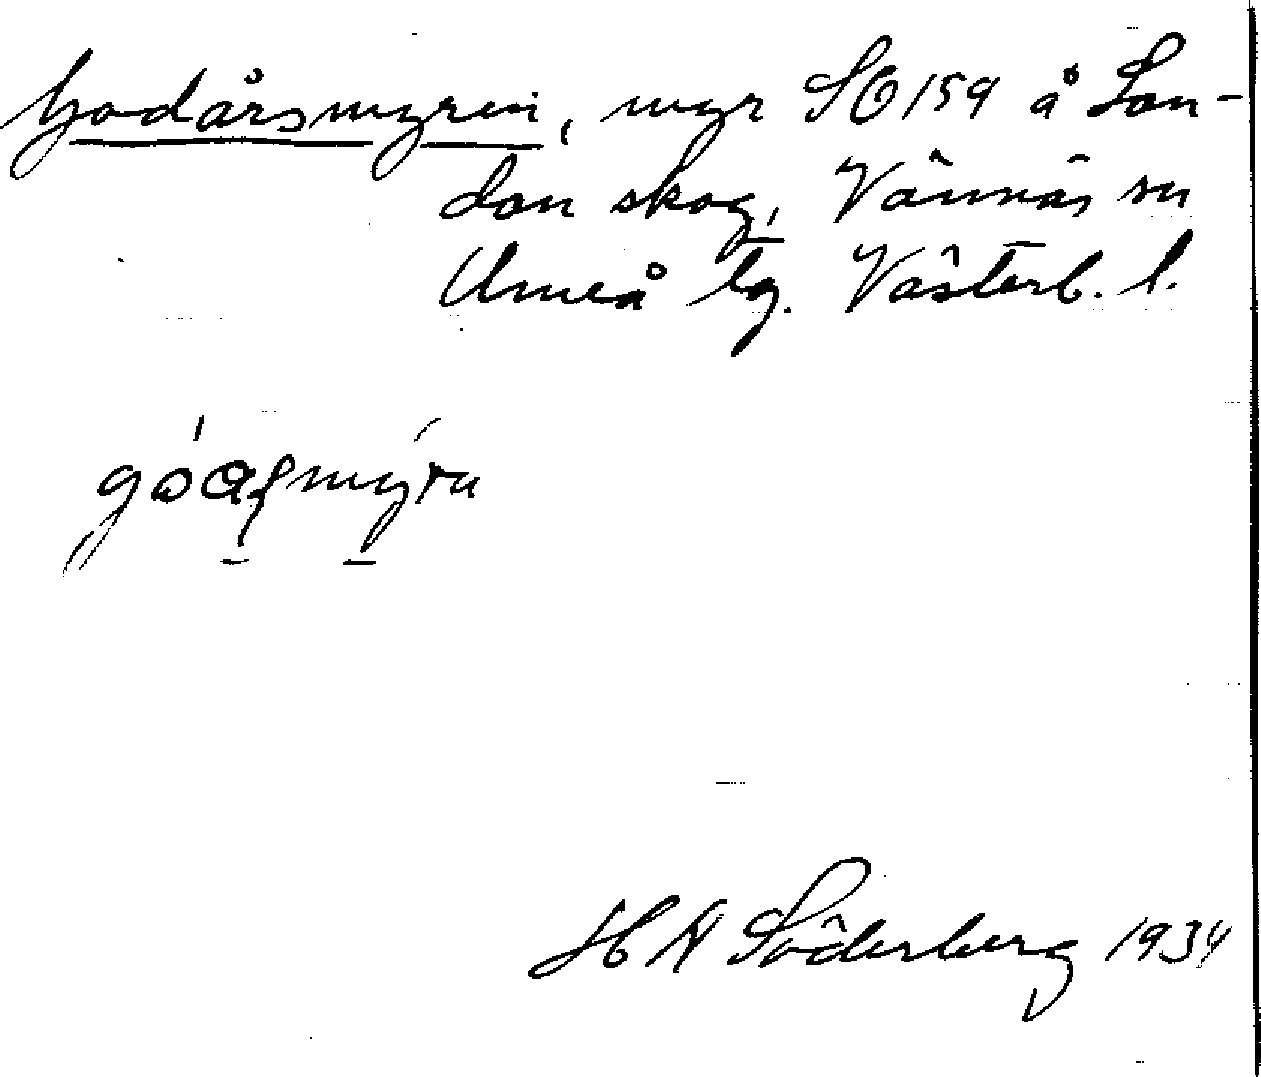 Godårsmyren, myr SO 159 å Lon-
don skog, Vännäs sn
Umeå tg. Västerb. l.
H A Söderberg 1934